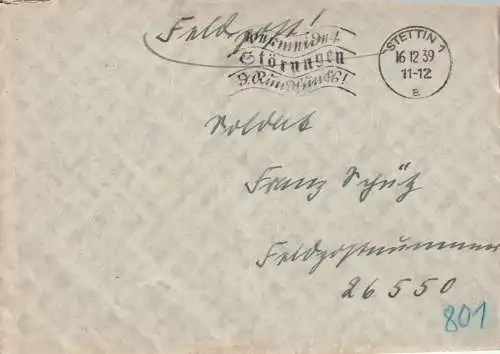 Feldpost!
Vermeidet
Störungen
d. Rundfunks!
STETTIN 1
16 12 39
11-12
a
Soldat
Franz Schütz
Feldpostnummer
26550
801